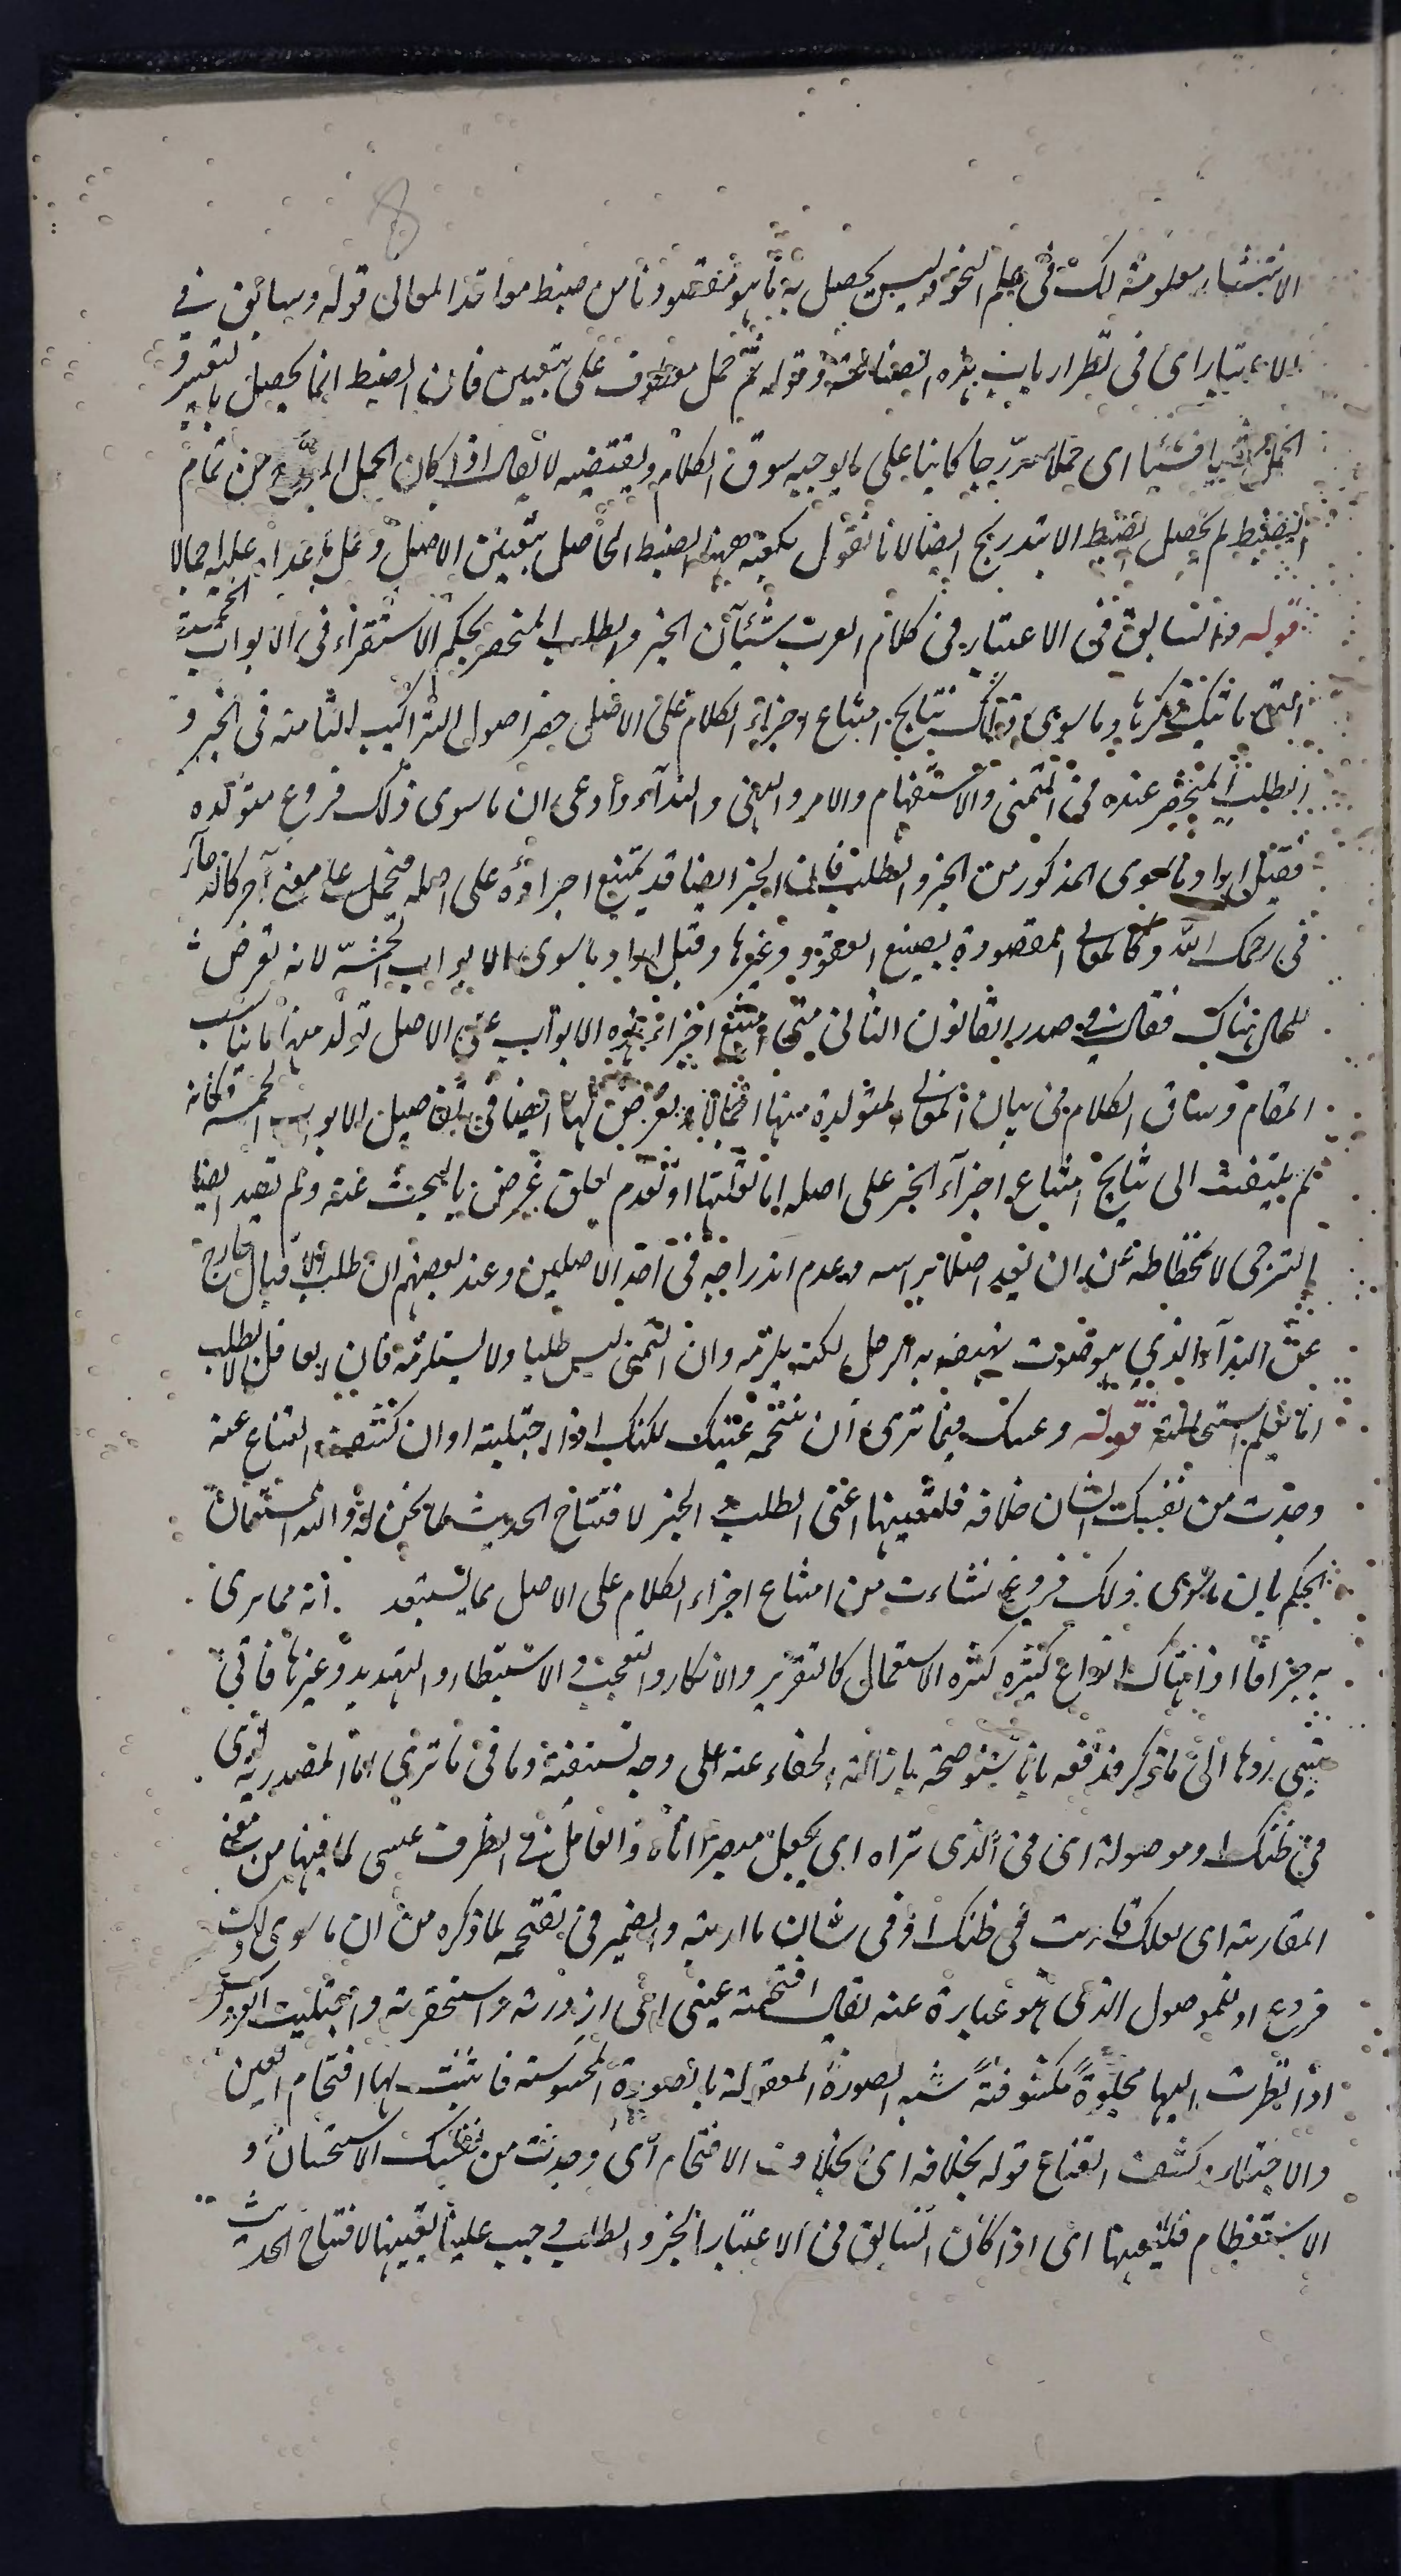 الانتشار معلومة لك فى علم النحو وليس يحصل به ما هو مقصودنا من ضبط معاقد المعانى قوله وسابق فى
الاعتبار اى فى نظر ارباب هذه الصناعة وقوله ثم حمل معطوف على تعيين فان الضبط انما يحصل بالتعيين و
الحمل شيئا فشيئا اى حملا متدرجا كائنا على ما يوجبه سوق الكلام ويقتضيه لا يقال اذا كان الحمل المدرج من تمام
الضبط لم يحصل الضبط الا بتدريج ايضا لانا نقول يكفيه هيهنا الضبط الحاصل بتعيين الاصل وحمل ما عداه عليه اجمالا
قوله والسابق فى الاعتبار فى كلام العرب شيئان الخبر والطلب المنحصر بحكم الاستقراء فى الابواب الخمسة
التى ياتيك ذكرها وما سوى ذلك نتايج امتناع اجراء الكلام على الاصل حصر اصول التراكيب التامة فى الخبر و
الطلب المنحصر عنده فى التمنى والاستفهام والامر والنهى والنداء وادعى ان ما سوى ذلك فروع متولدة
فقيل اراد ما سوى المذكور من الخبر والطلب فان الخبر ايضا قد يمتنع اجراؤه على اصله فيحمل على معنى آخر كالدعاء
فى رحمك الله وكالمعانى المقصودة بصيغ العقود وغيرها وقيل اراد ما سوى الابواب الخمسة لانه تعرض
للحال هناك فقال فى صدر القانون الثانى متى امتنع اجراء هذه الابواب على الاصل تولد منها ما ناسب
المقام وساق الكلام فى بيان المعانى المتولدة منها اجمالا وتعرض لها ايضا فى تفاصيل الابواب الخمسة وكانه
لم يلتفت الى نتايج امتناع اجراء الخبر على اصله اما لقلتها او لعدم تعلق غرض بالبحث عنه ولم يعد ايضا
الترجى لانحطاطه عن ان يعد اصلا براسه وعدم اندراجه فى احد الاصلين وعند بعضهم ان طلب الاقبال خارج
عن النداء الذى هو صوت يهتف به الرجل لكنه يلزمه وان التمنى ليس طلبا ولا يستلزمه فان العاقل لا يطلب
ما يعلم استحالته قوله وعسك فيما ترى ان تقتحمه عينك لكنك اذا اجتليته او ان كشف القناع عنه
وجدت من نفسك الشان خلافه فلنعينها اعنى الطلب والخبر لافتتاح الحديث لما نحن له والله المستعان
الحكم بان ما سوى ذلك فروع نشاءت من امتناع اجراء الكلام على الاصل مما يستبعد انه مما يرى
به جزافا اذ هناك انواع كثيرة كثيرة الاستعمال كالتقرير والانكار والتعجب والاستبطاء والتهديد وغيرها فانى
يتيسر ردها الى ما ذكر فدفعه بانا سنوضحه بازالة الخفاء عنه على وجه تستيقنه وما فى ما ترى اما مصدرية اى
فى ظنك او موصولة اى فى الذى تراه اى يجعل مبصرا اياه والعامل فى الظرف عسى لما فيها من معنى
المقاربة اى لعلك قاربت فى ظنك او فى شان ما اريته والضمير فى تقتحمه لما ذكره من ان ما سوى ذلك
فروع او للموصول الذى هو عبارة عنه يقال اقتحمته عينى اى ازدرته واستحقرته واجتليت العروس
اذا نظرت اليها مجلوة مكشوفة شبه الصورة المعقولة بالصورة المحسوسة فاثبت لها اقتحام العين
والاجتلاء وكشف القناع قوله بخلافه اى بخلاف الاقتحام اى وجدت من نفسك الاستحسان و
الاستعظام فلنعينها اى اذا كان السابق فى الاعتبار الخبر والطلب وجب علينا تعيينها لافتتاح الحديث